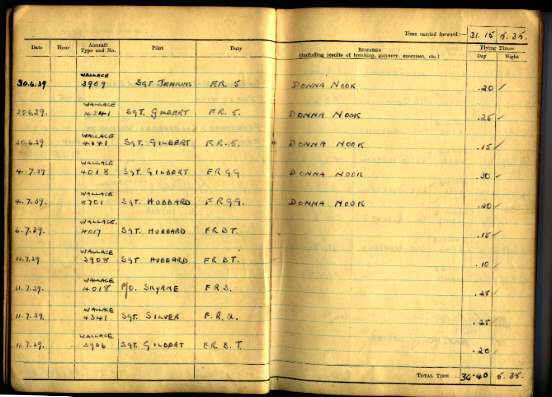 Time carried forward:— 31.15 5.35.
Date Hour Aircraft Type and No. Pilot Duty Remarks (including results of bombing, gunnery, exercises, etc.) Flying Times Day Night
30.6.39 WALLACE 3909 SGT JENKINS F.R. 5. DONNA NOOK .20
20.6.39. WALLACE 4341 SGT. GILBERT F.R. 5. DONNA NOOK .25
30.6.39 WALLACE 4341 SGT. GILBERT F.R. 5. DONNA NOOK .15
4.7.39 WALLACE 4018 SGT GILBERT F R G G DONNA NOOK .30
4.7.39. WALLACE 4701 SGT HUBBARD F R G G. DONNA NOOK .20
6.7.39. WALLACE 4017 SGT HUBBARD F R B T. .15
11.7.39 WALLACE 3908 SGT HUBBARD F R B T. .10
11.7.39. WALLACE 4018 P/O. F R S. .25
11.7.39. WALLACE 4341 SGT. SILVER F. R. .25
11.7.39. WALLACE 3906 SGT GILBERT F R B. T. .20
TOTAL TIME 34.40 5.35.